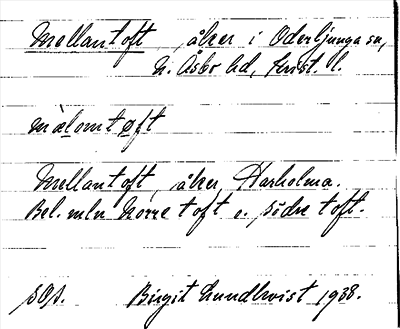 Mellantoft, åker i Oderljunga sn,
N. Åsbo hd, Krist. l.
mälomtøft
Mellantoft, åker, Harholma.
Bel. mln Norre toft o. södre toft.
Birgit Lundkvist 1938.